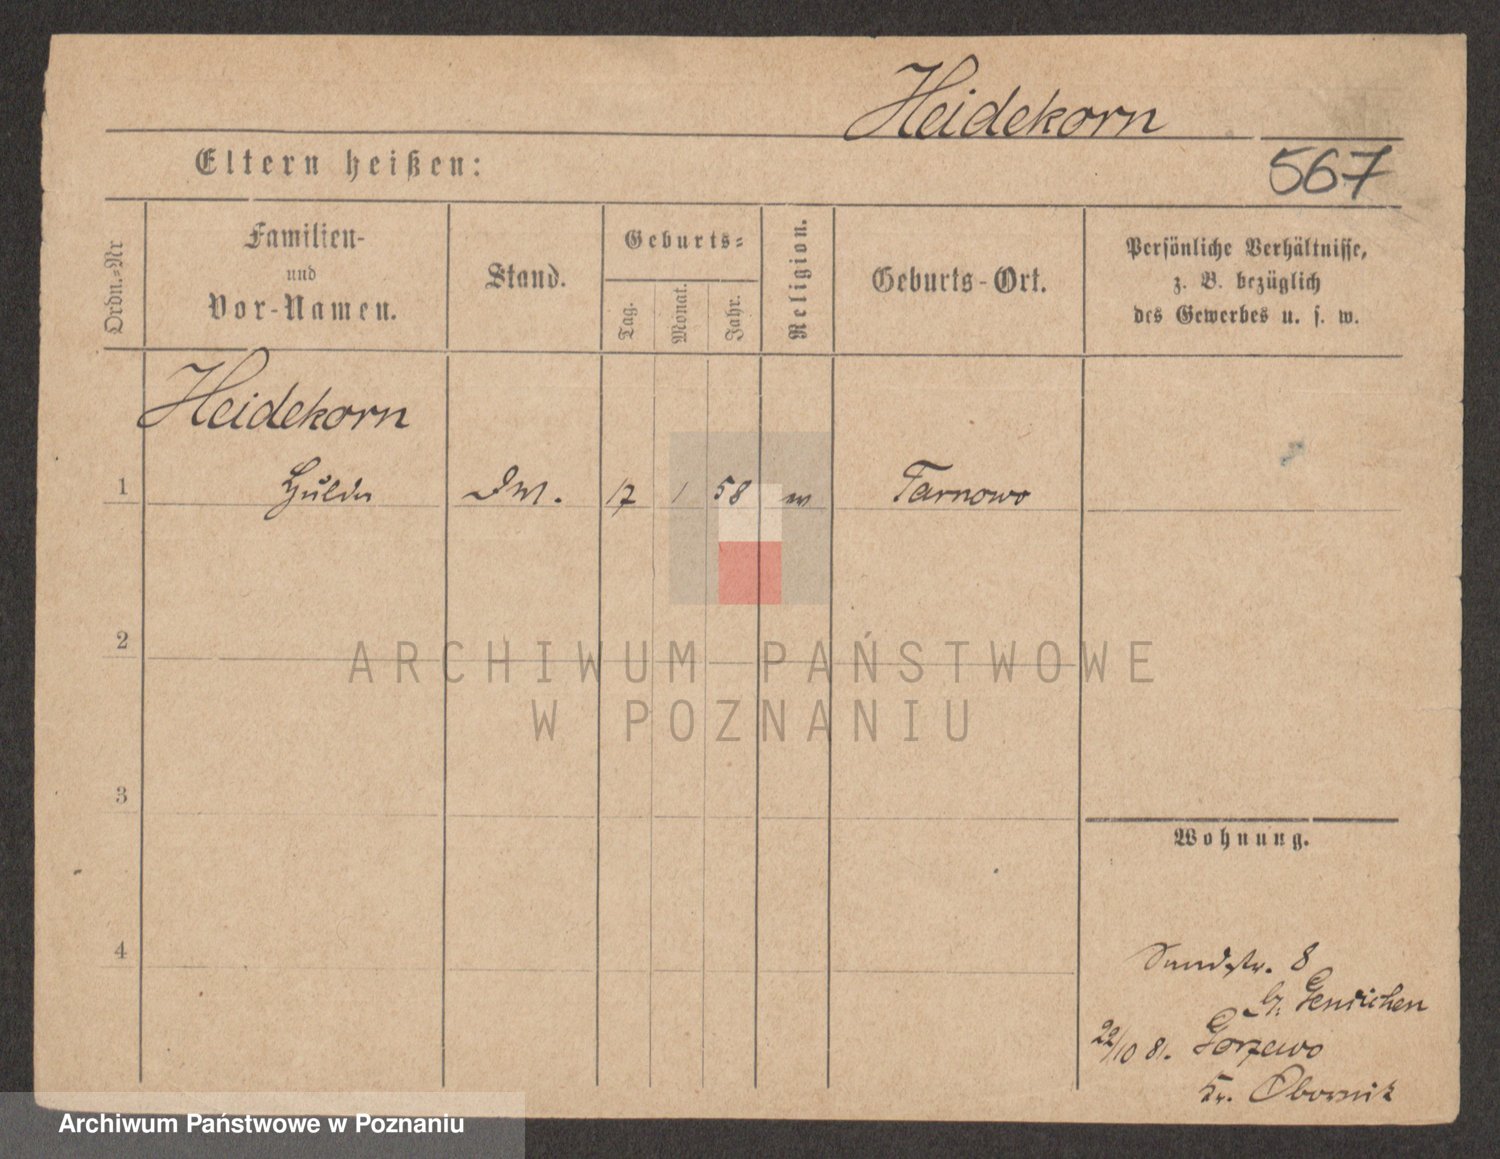 Heidekorn
567
Eltern heißen:
Ordn.-Nr
Familien-
und
Vor-Namen.
Stand.
Geburts-
Tag.
Monat.
Jahr.
Religion.
Geburts-Ort.
Persönliche Verhältnisse,
z. B. bezüglich
des Gewerbes u. s. w.
Heidekorn
1 Hulda 17 1 58 Tarnowo
2
ARCHIWUM PAŃSTWOWE
W POZNANIU
3
Wohnung.
4
Sandstr. 8
b. Genrichen
22/10 81. Gorzewo
Kr. Obornik
Archiwum Państwowe w Poznaniu